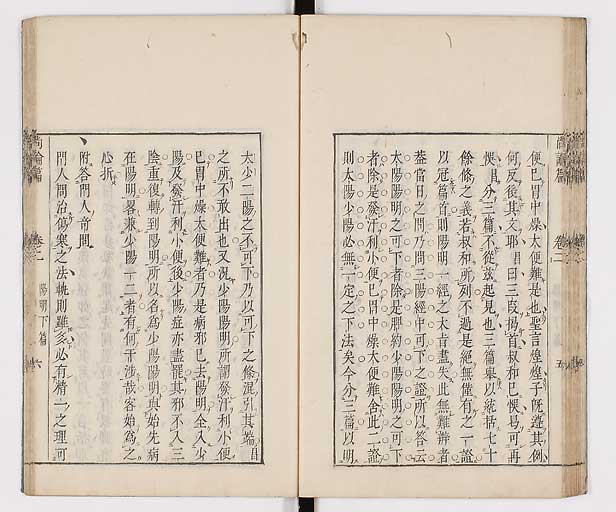 便已胃中燥太便難是也聖言煌煌子旣遵其例
何反後其文耶曰曰三段揭首叔和已悞曷可再
悞且分三篇不從玆起見也三篇舉以統括七十
餘條之義若叔和所列不過是絕無僅有之一證
以冠篇首則陽明一經之大旨盡失此無難辨者
葢當日之問乃問三陽經中可下之證所以答云
太陽陽明之可下者除是脾約少陽陽明之可下
者除是發汗利小便已胃中燥大便難舍此二證
則太陽少陽必無一定之下法矣今分三篇以明
尙論篇
卷二
五
太少二陽之不可下乃以可下之條混引其端自
之所不敢出也又況少陽陽明所謂發汗利小便
已胃中燥太便難者乃是病邪已去陽明全入少
陽及發汗利小便後少陽症亦盡罷其邪不入三
陰重復轉到陽明所以名為少陽陽明與始先病
在陽明畧兼少陽一二者有何干涉哉客始為之
心折
附答門人奇問
門人問治傷寒之法執則難多必有精一之理可
尙論篇
卷二
陽明下篇
六